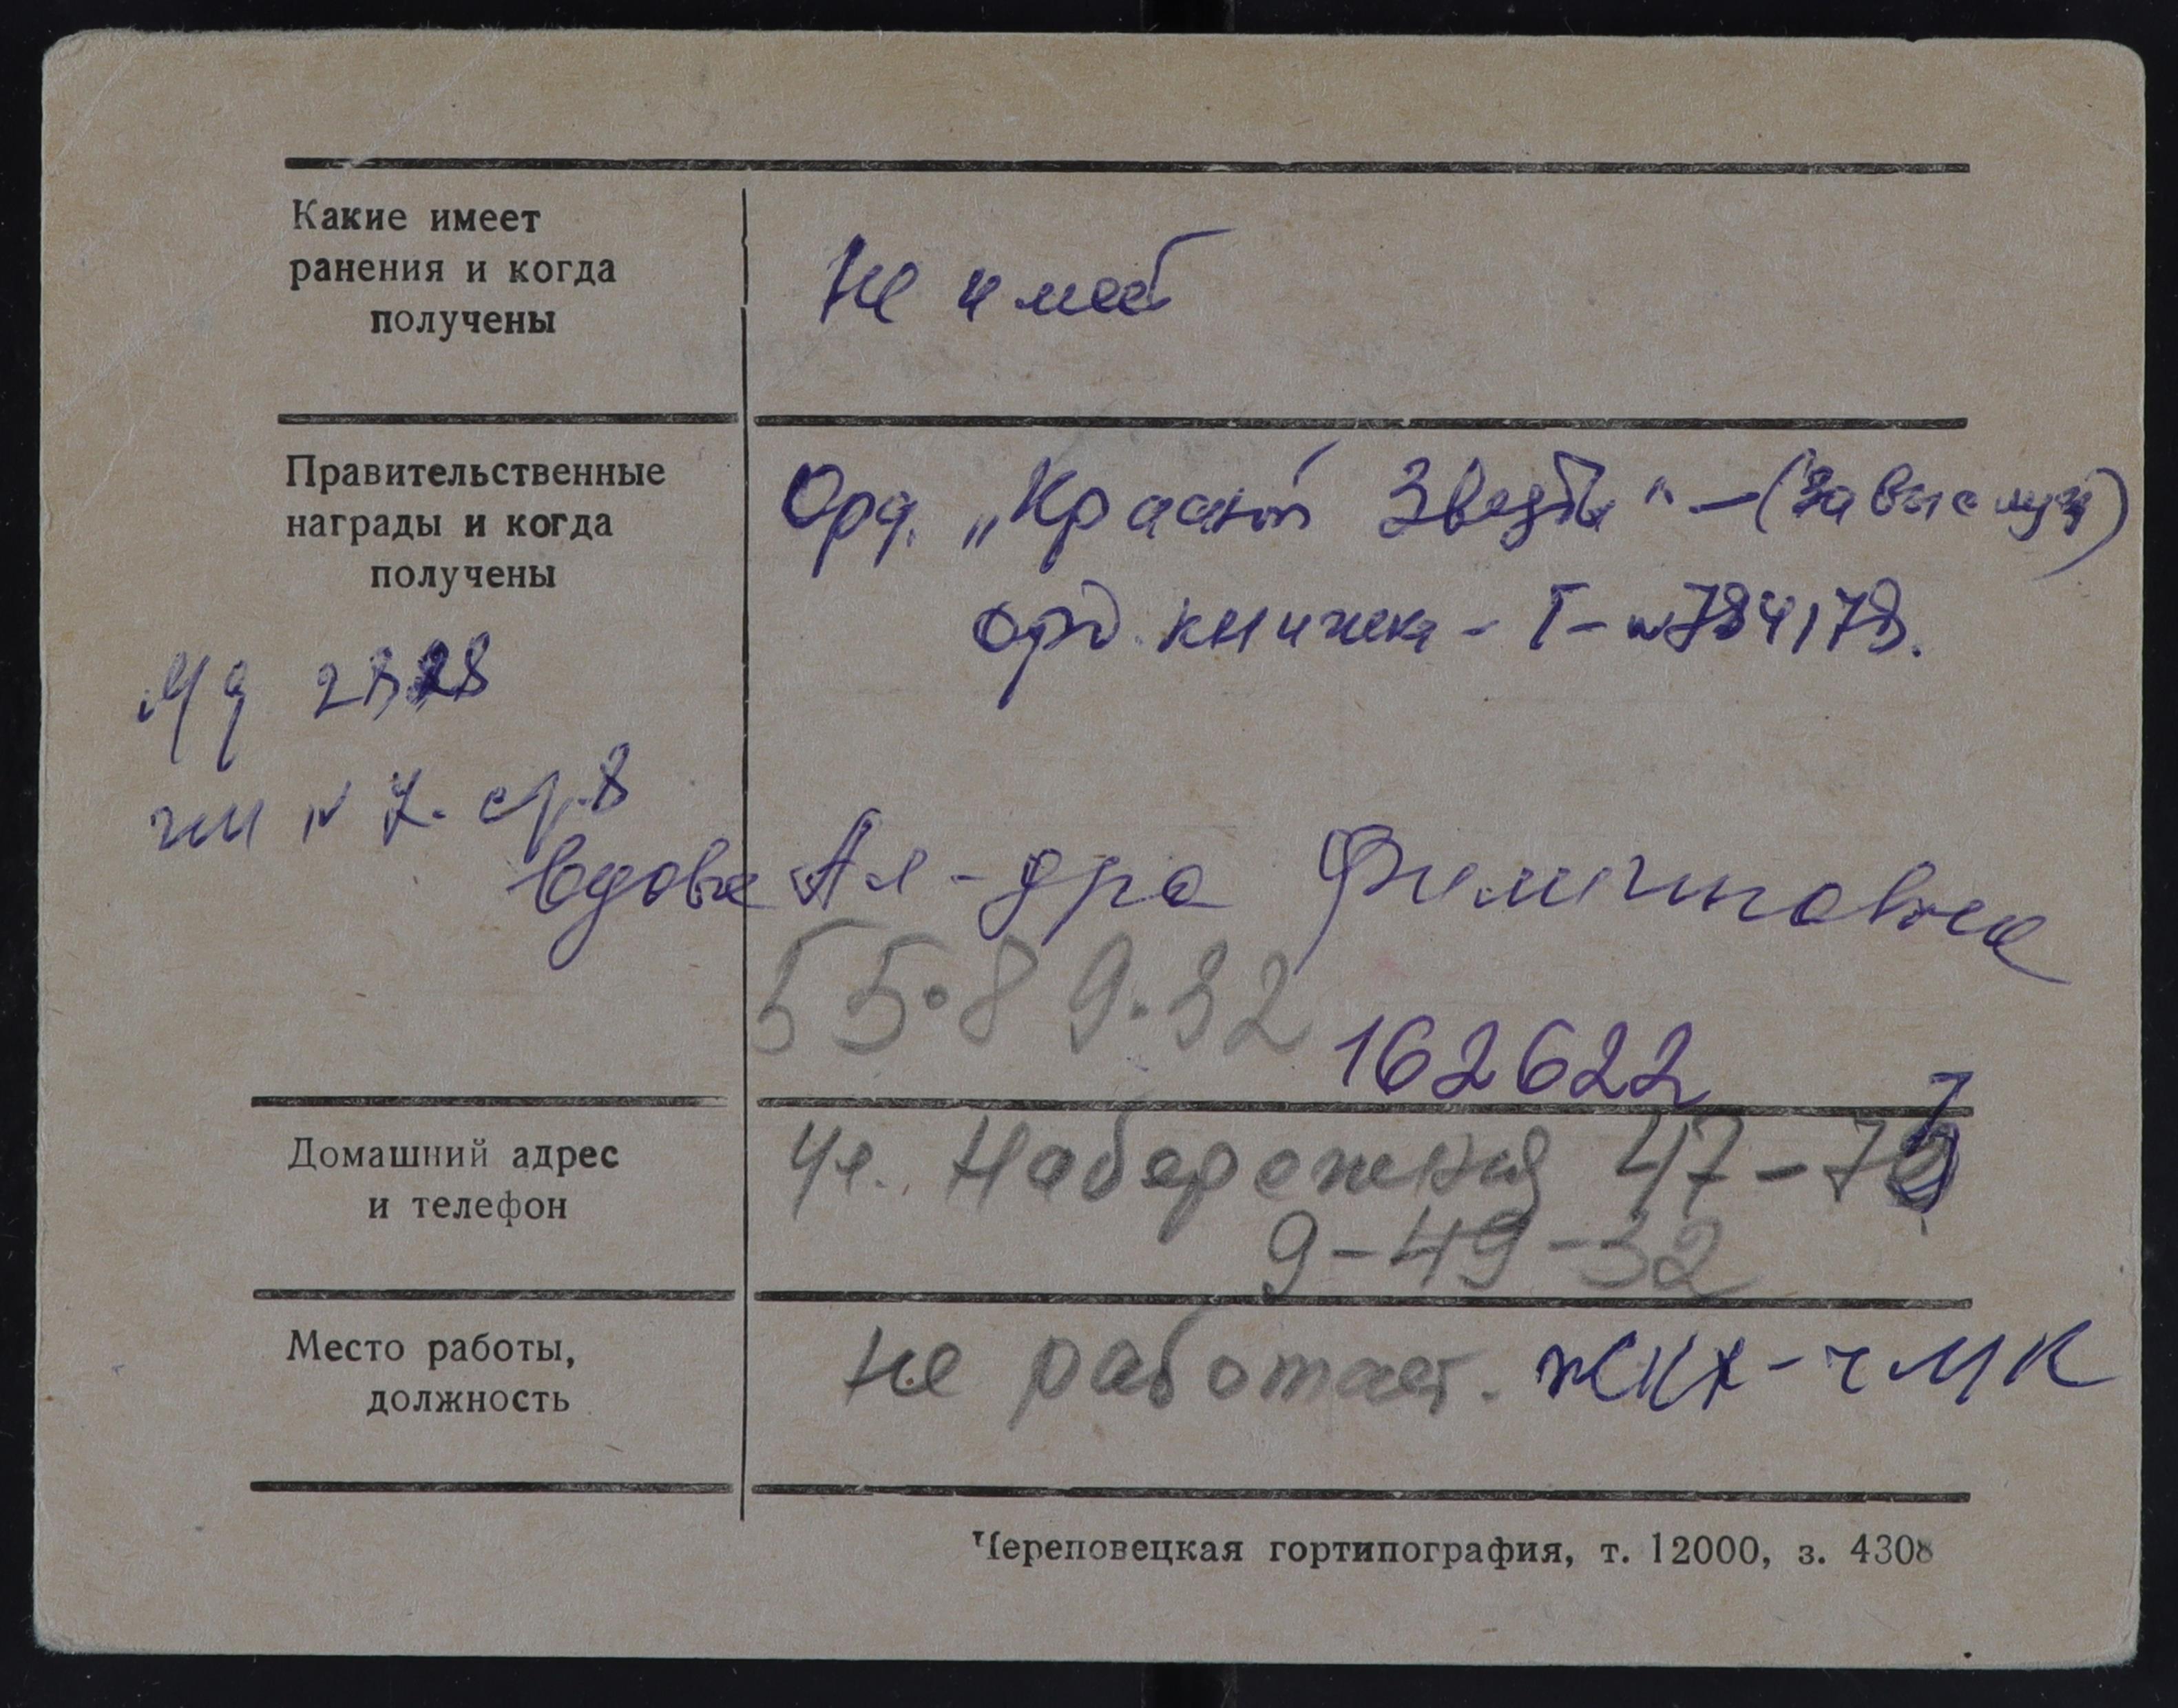 Какие имеет
ранения и когда
получены
Не имеет
Правительственные
награды и когда
получены
Орд. „Красной Звезды" – (за выслугу)
орд. книжка – Г – № 784178.
чм № 7. стр. 8
вдова Ал-дра Филипповна
55•89•32
162622
Домашний адрес
и телефон
ул. Набережная 47–7
9–49–32
Место работы,
должность
не работает. ЖКХ – ЧМК
Череповецкая гортипография, т. 12000, з. 4308